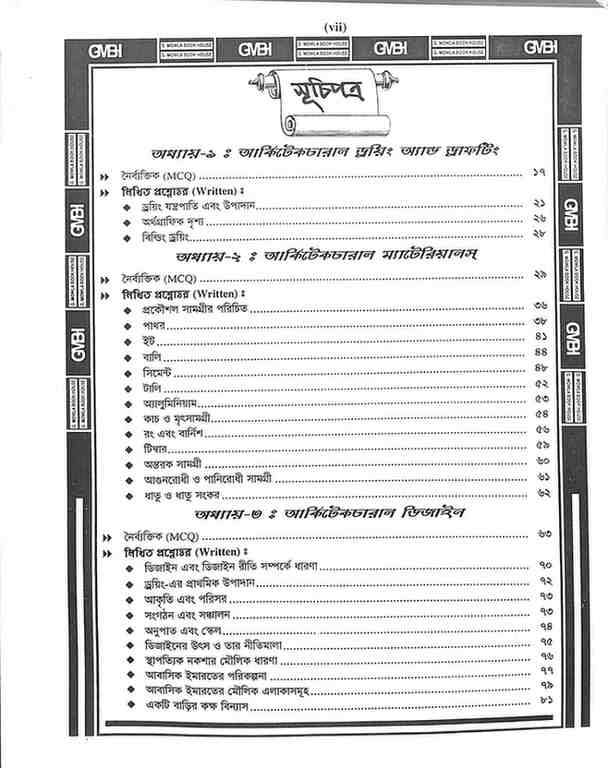 (vii)
GMBH G. MOWLA BOOK HOUSE GMBH G. MOWLA BOOK HOUSE GMBH G. MOWLA BOOK HOUSE GMBH
সূচিপত্র
অধ্যায়-১ : আর্কিটেকচারাল ড্রয়িং অ্যান্ড ড্রাফটিং
নৈর্ব্যক্তিক (MCQ) ১৭
লিখিত প্রশ্নোত্তর (Written) :
ড্রয়িং যন্ত্রপাতি এবং উপাদান ২১
অর্থগ্রাফিক দৃশ্য ২৬
বিল্ডিং ড্রয়িং ২৮
অধ্যায়-২ : আর্কিটেকচারাল ম্যাটেরিয়ালস্
নৈর্ব্যক্তিক (MCQ) ২৯
লিখিত প্রশ্নোত্তর (Written) :
প্রকৌশল সামগ্রীর পরিচিত ৩৬
পাথর ৩৮
ইট ৪১
বালি ৪৪
সিমেন্ট ৪৮
টালি ৫২
অ্যালুমিনিয়াম ৫৩
কাচ ও মৃৎসামগ্রী ৫৪
রং এবং বার্নিশ ৫৬
টিম্বার ৫৯
অন্তরক সামগ্রী ৬০
আগুনরোধী ও পানিরোধী সামগ্রী ৬১
ধাতু ও ধাতু সংকর ৬২
অধ্যায়-৩ : আর্কিটেকচারাল ডিজাইন
নৈর্ব্যক্তিক (MCQ) ৬৩
লিখিত প্রশ্নোত্তর (Written) :
ডিজাইন এবং ডিজাইন রীতি সম্পর্কে ধারণা ৭০
ড্রয়িং-এর প্রাথমিক উপাদান ৭২
আকৃতি এবং পরিসর ৭৩
সংগঠন এবং সঞ্চালন ৭৩
অনুপাত এবং স্কেল ৭৪
ডিজাইনের উৎস ও তার নীতিমালা ৭৫
স্থাপত্যিক নকশার মৌলিক ধারণা ৭৬
আবাসিক ইমারতের পরিকল্পনা ৭৭
আবাসিক ইমারতের মৌলিক এলাকাসমূহ ৭৯
একটি বাড়ির কক্ষ বিন্যাস ৮১